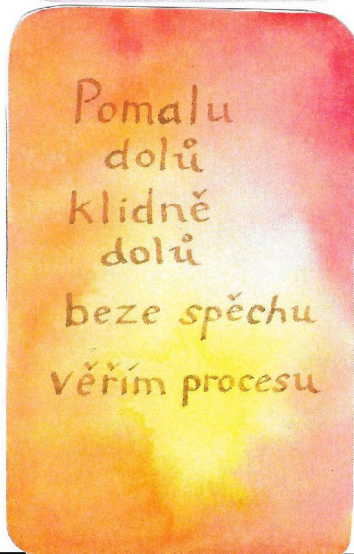 Pomalu
dolů
klidně
dolů
beze spěchu
věřím procesu